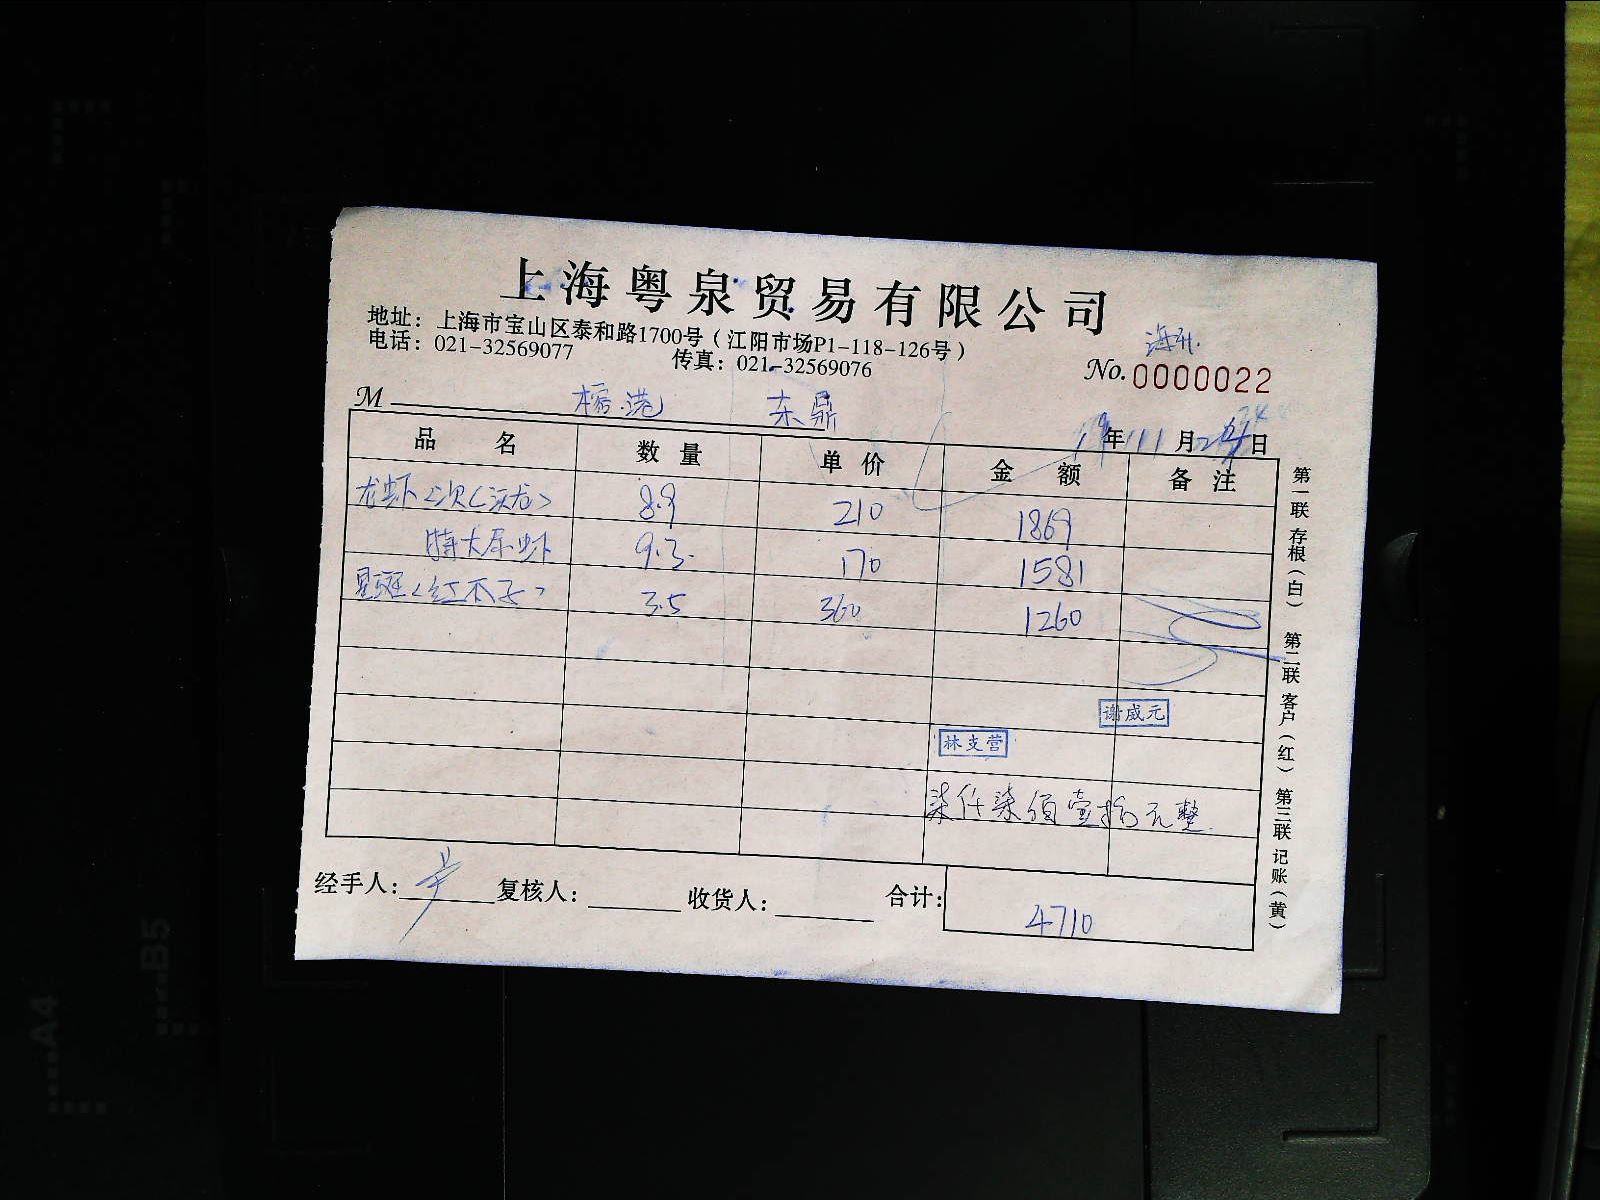 上海粤泉贸易有限公司
地址：上海市宝山区泰和路1700号（江阳市场P1-118-126号）
电话：021-32569077 传真：021-32569076
No. 0000022
M 东鼎
年 11 月 日
品名 数量 单价 金额 备注
龙虾 8.9 210 1869
特大 虾 9.3 170 1581
星斑（红瓜子） 3.5 360 1260
谢威元
林支营
柒仟柒佰壹拾元整
经手人： 复核人： 收货人： 合计： 4710
第一联 存根（白） 第二联 客户（红） 第三联 记账（黄）
A4
B5